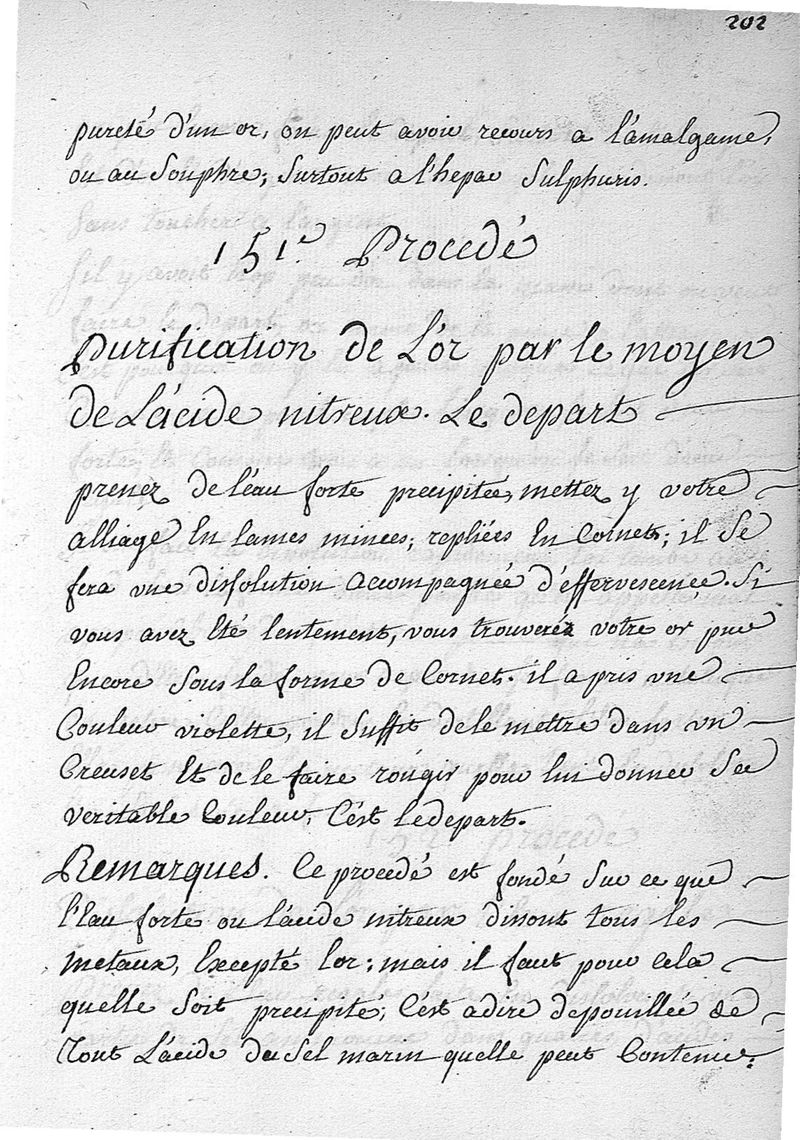 202
pureté d'un or, on peut avoir recours a l'amalgame,
ou au Souphre; Surtout a l'hepar Sulphuris.
151.e Procedé
Purification de L'or par le moyen
de L'ácide nitreux. Le depart
prenez de l'éau forte precipitée, mettez y votre
alliage En lames minces, repliées En Cornets; il Se
fera une dissolution accompagnée d'éffervescence. Si
vous avez Eté lentement, vous trouverez votre or pur
Encore Sous la forme de Cornet. il a pris une
Couleur violette, il Suffit de le mettre dans un
Creuset Et de le faire roúgir pour lui donner Sa
veritable Couleur, C'est le depart.
Remarques. Ce procedé est fondé Sur ce que
l'Eau forte ou l'ácide nitreux dissout tous les
metaux, Excepté l'or; mais il faut pour cela
quelle Soit precipité, C'est a dire depouillée de
Tout L'acide du Sel marin quelle peut Contenir.